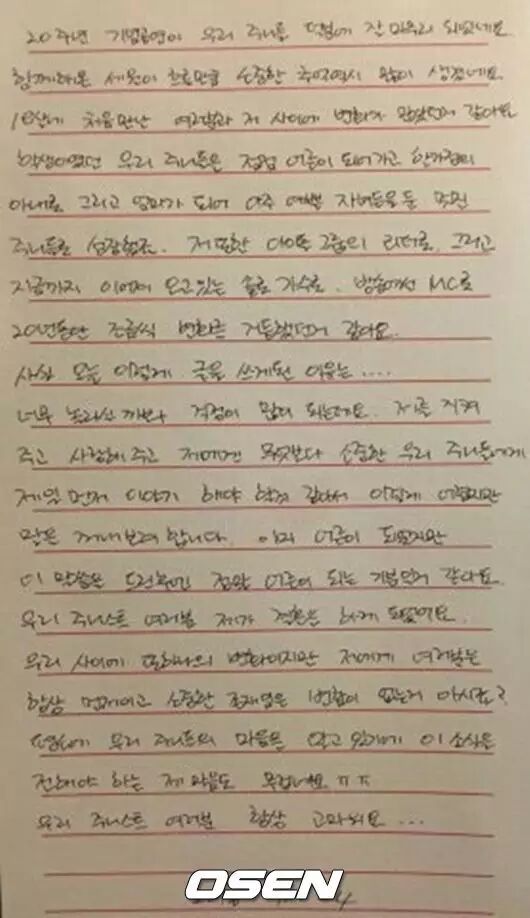 20주년 기념공연이 우리 주니들 덕분에 잘 마무리 되었네요.
함께해온 세월이 흐른만큼 소중한 추억역시 많이 생겼네요.
18살에 처음만난 여러분과 저 사이에 변화가 많았던거 같아요
학생이였던 우리 주니들은 점점 어른이 되어가고 한가정의
아내로 그리고 엄마가 되어 아주 예쁜 자녀들을 둔 멋진
주니들로 성장했죠. 저 또한 아이돌 그룹의 리더로, 그리고
지금까지 이어져 오고있는 솔로 가수로, 방송에선 MC로
20년동안 조금씩 변화를 거듭했던거 같아요.
사실 오늘 이렇게 글을 쓰게된 이유는....
너무 놀라실까봐 걱정이 많이 되는데요. 저를 지켜
주고 사랑해주고 저에겐 무엇보다 소중한 우리 주니들에게
제일먼저 이야기 해야 할것 같아서 이렇게 어렵지만
말을 꺼내보려 합니다. 이미 어른이 되었지만
이 말씀을 드린후엔 정말 어른이 되는 기분인거 같아요.
우리 주니스트 여러분 제가 결혼을 하게 되었어요.
우리 사이에 또하나의 변화이지만 저에게 여러분은
항상 먼저이고 소중한 존재임은 변함이 없는거 아시죠?
우리 주니들의 마음을 알고 있기에 이 소식을
전해야 하는 제 마음도 무겁네요 ㅠㅠ
우리 주니스트 여러분 항상 고마워요...
OSEN